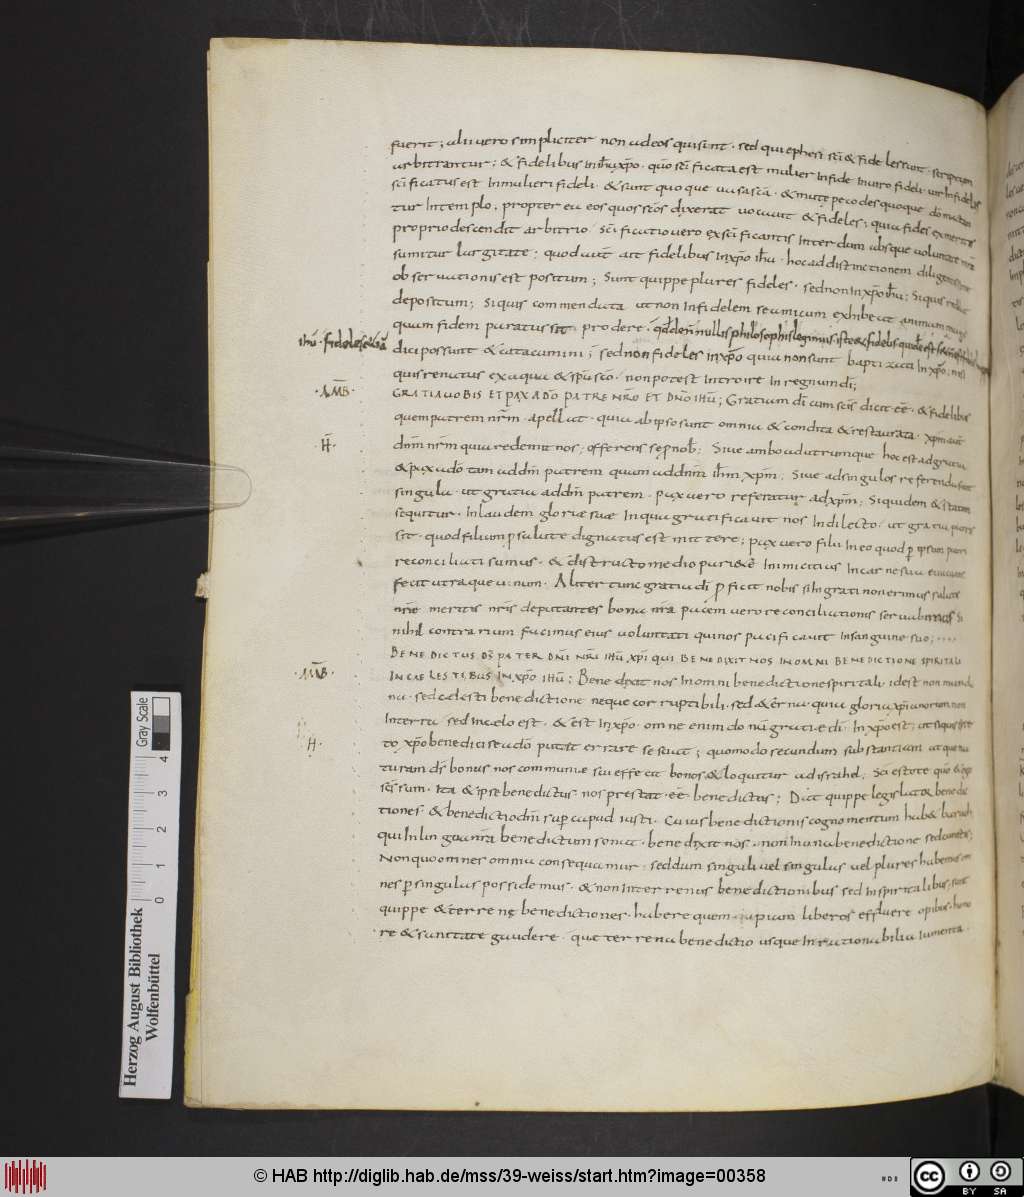 fuerit; alii vero simpliciter non ad eos qui sunt · sed qui ephesi sc̄i & fideles sunt · scriptum
arbitrantur; & fidelibus in ih̄u xp̄o · quō sc̄ificata est mulier infide in viro fideli · vir infidelis
sc̄ificatus est in muliere fideli · & sunt quoque vasa sc̄a · & mutę pecodes quoque
tur in templo; propter ea eos quos sc̄os dixerat vocavit & fideles; quia fides ex mentis
proprio descendit arbitrio / sc̄ificatio vero ex sc̄ificantis interdum absque voluntate nr̄a
sumitur largitate; quod autē ait fidelibus in xp̄o ih̄u · hoc ad distinctionem diligentissime
observationis est positum; Sunt quippe plures fideles · sed non in xp̄o ih̄u; Si quis reddat
depositum; Si quis commendata ut non infidelem se amicum exhibeat animum magis
quam fidem paratus sit prodere ·
ih̄u · fideles &iā
dici possunt & catacumini; sed non fideles in xp̄o quia non sunt baptizati in xp̄o; nisi
quis renatus ex aqua & sp̄u sc̄o / non potest introire in regnum dī;
· AMB̄ ·
GRATIA VOBIS ET PAX A DŌ PATRE NR̄O ET DN̄O IH̄U; Gratiam dī cum sc̄is dicit eē · & fidelibus
quem patrem nr̄m · apellat · quia ab ipso sunt omnia & condita & restaurata · xp̄m autē
· H̄ ·
dn̄m nr̄m quia redemit nos; offerens se p nob̄; Sive ambo ad utrumque hoc est ad gratia
& pax ad dō tam ad dm̄ patrem quam ad dn̄m ih̄m xp̄m; Sive ad singulos referenda sunt
singula · ut gratia ad dm̄ patrem · pax vero referatur ad xp̄m; Siquidem & statim
sequitur · In laudem gloriæ suæ in qua gratificavit nos in dilecto / ut gratia patris
sit · quod filium p salute dignatus est mittere; pax vero filii in eo quod p ipsum patri
reconciliati sumus · & distructo medio pari&ē inimicitias in carne sua evacuans
fecit utraque unum · Aliter tunc gratia dī pficit nobis si ingrati non erimus salutis
nr̄ae meritis nr̄is deputantes bona nr̄a pacem vero reconciliationis servabimus si
nihil contrarium facimus eius voluntati qui nos pacificavit in sanguine suo; ····
BENEDICTUS DS̄ PATER DN̄I NR̄I IH̄U XP̄I QUI BENEDIXIT NOS IN OMNI BENEDICTIONE SPIRITALI
· AMB̄ ·
IN CAELESTIBUS IN XP̄O IH̄U; Benedixit nos in omni benedictione spiritali id est non munda
na · sed caelesti benedictione neque corruptibili · sed &erna · quia gloria xp̄ianorum non
in terra sed in caelo est · & est in xp̄o · omne enim donū gratiae dī · in xp̄o est; ut siquis
· H̄ ·
to xp̄o benedici se a dō putat errare se sciat; quomodo secundum substantiam ut que na
turam ds̄ bonus nos communicæ sui effecit bonos & loquitur ad israhel; Sc̄i estote quō & ego
sc̄s sum · ita & ipse benedictus nos prestat eē benedictos; Dicit quippe legislator benedic
tiones · & benedictio dn̄i sup caput iusti · Cuius benedictionis cognomentum hab& baruch
qui in lingua nr̄a benedictum sonat · benedixit nos · non in una benedictione sed cunctis;
Non quo omnes omnia consequamur · sed dum singuli vel singulas vel plures habemus om
nes p singulas possidemus · & non in terrenis benedictionibus sed in spiritalibus; sunt
quippe & terrenę benedictiones · habere quem-iapiam liberos effluere opibus · hono
re & sanitate gaudere · que terrena benedictio usque in rationabilia iumenta ·
Herzog August Bibliothek
Wolfenbüttel
Gray Scale
0 1 2 3 4
© HAB http://diglib.hab.de/mss/39-weiss/start.htm?image=00358
cc BY SA